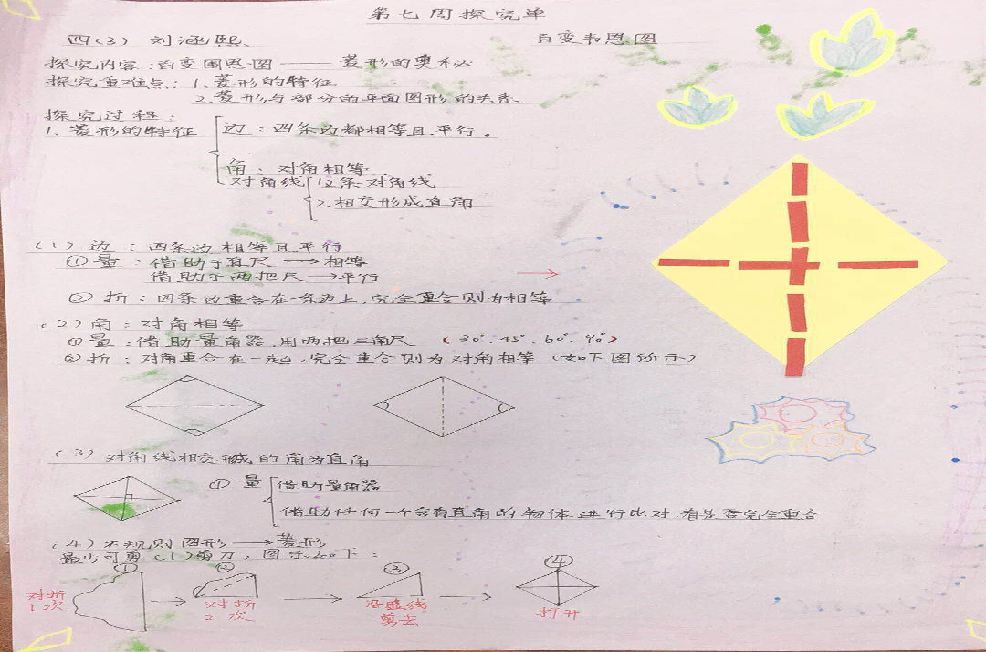 第七周探究单
四(3) 刘涵熙
百变韦恩图
探究内容:百变韦恩图——菱形的奥秘
探究重难点:1.菱形的特征
2.菱形与部分的平面图形的关系
探究过程:
1.菱形的特征
边:四条边都相等且平行。
角:对角相等
对角线
1.2条对角线
2.相交形成直角
(1)边:四条边相等且平行
①量:借助于直尺→相等
借助于两把尺→平行
②折:四条边重合在一条边上,完全重合则为相等
(2)角:对角相等
①量:借助量角器,用两把三角尺(30°、45°、60°、90°)
②折:对角重合在一起,完全重合则为对角相等(如下图所示)
(3)对角线相交成的角为直角
①量
借助量角器
借助任何一个含有直角的物体进行比对看是否完全重合
(4)不规则图形→菱形
最少可剪(1)剪刀,图示如下:
① ② ③ ④
对折1次
对折2次
沿虚线剪去
打开